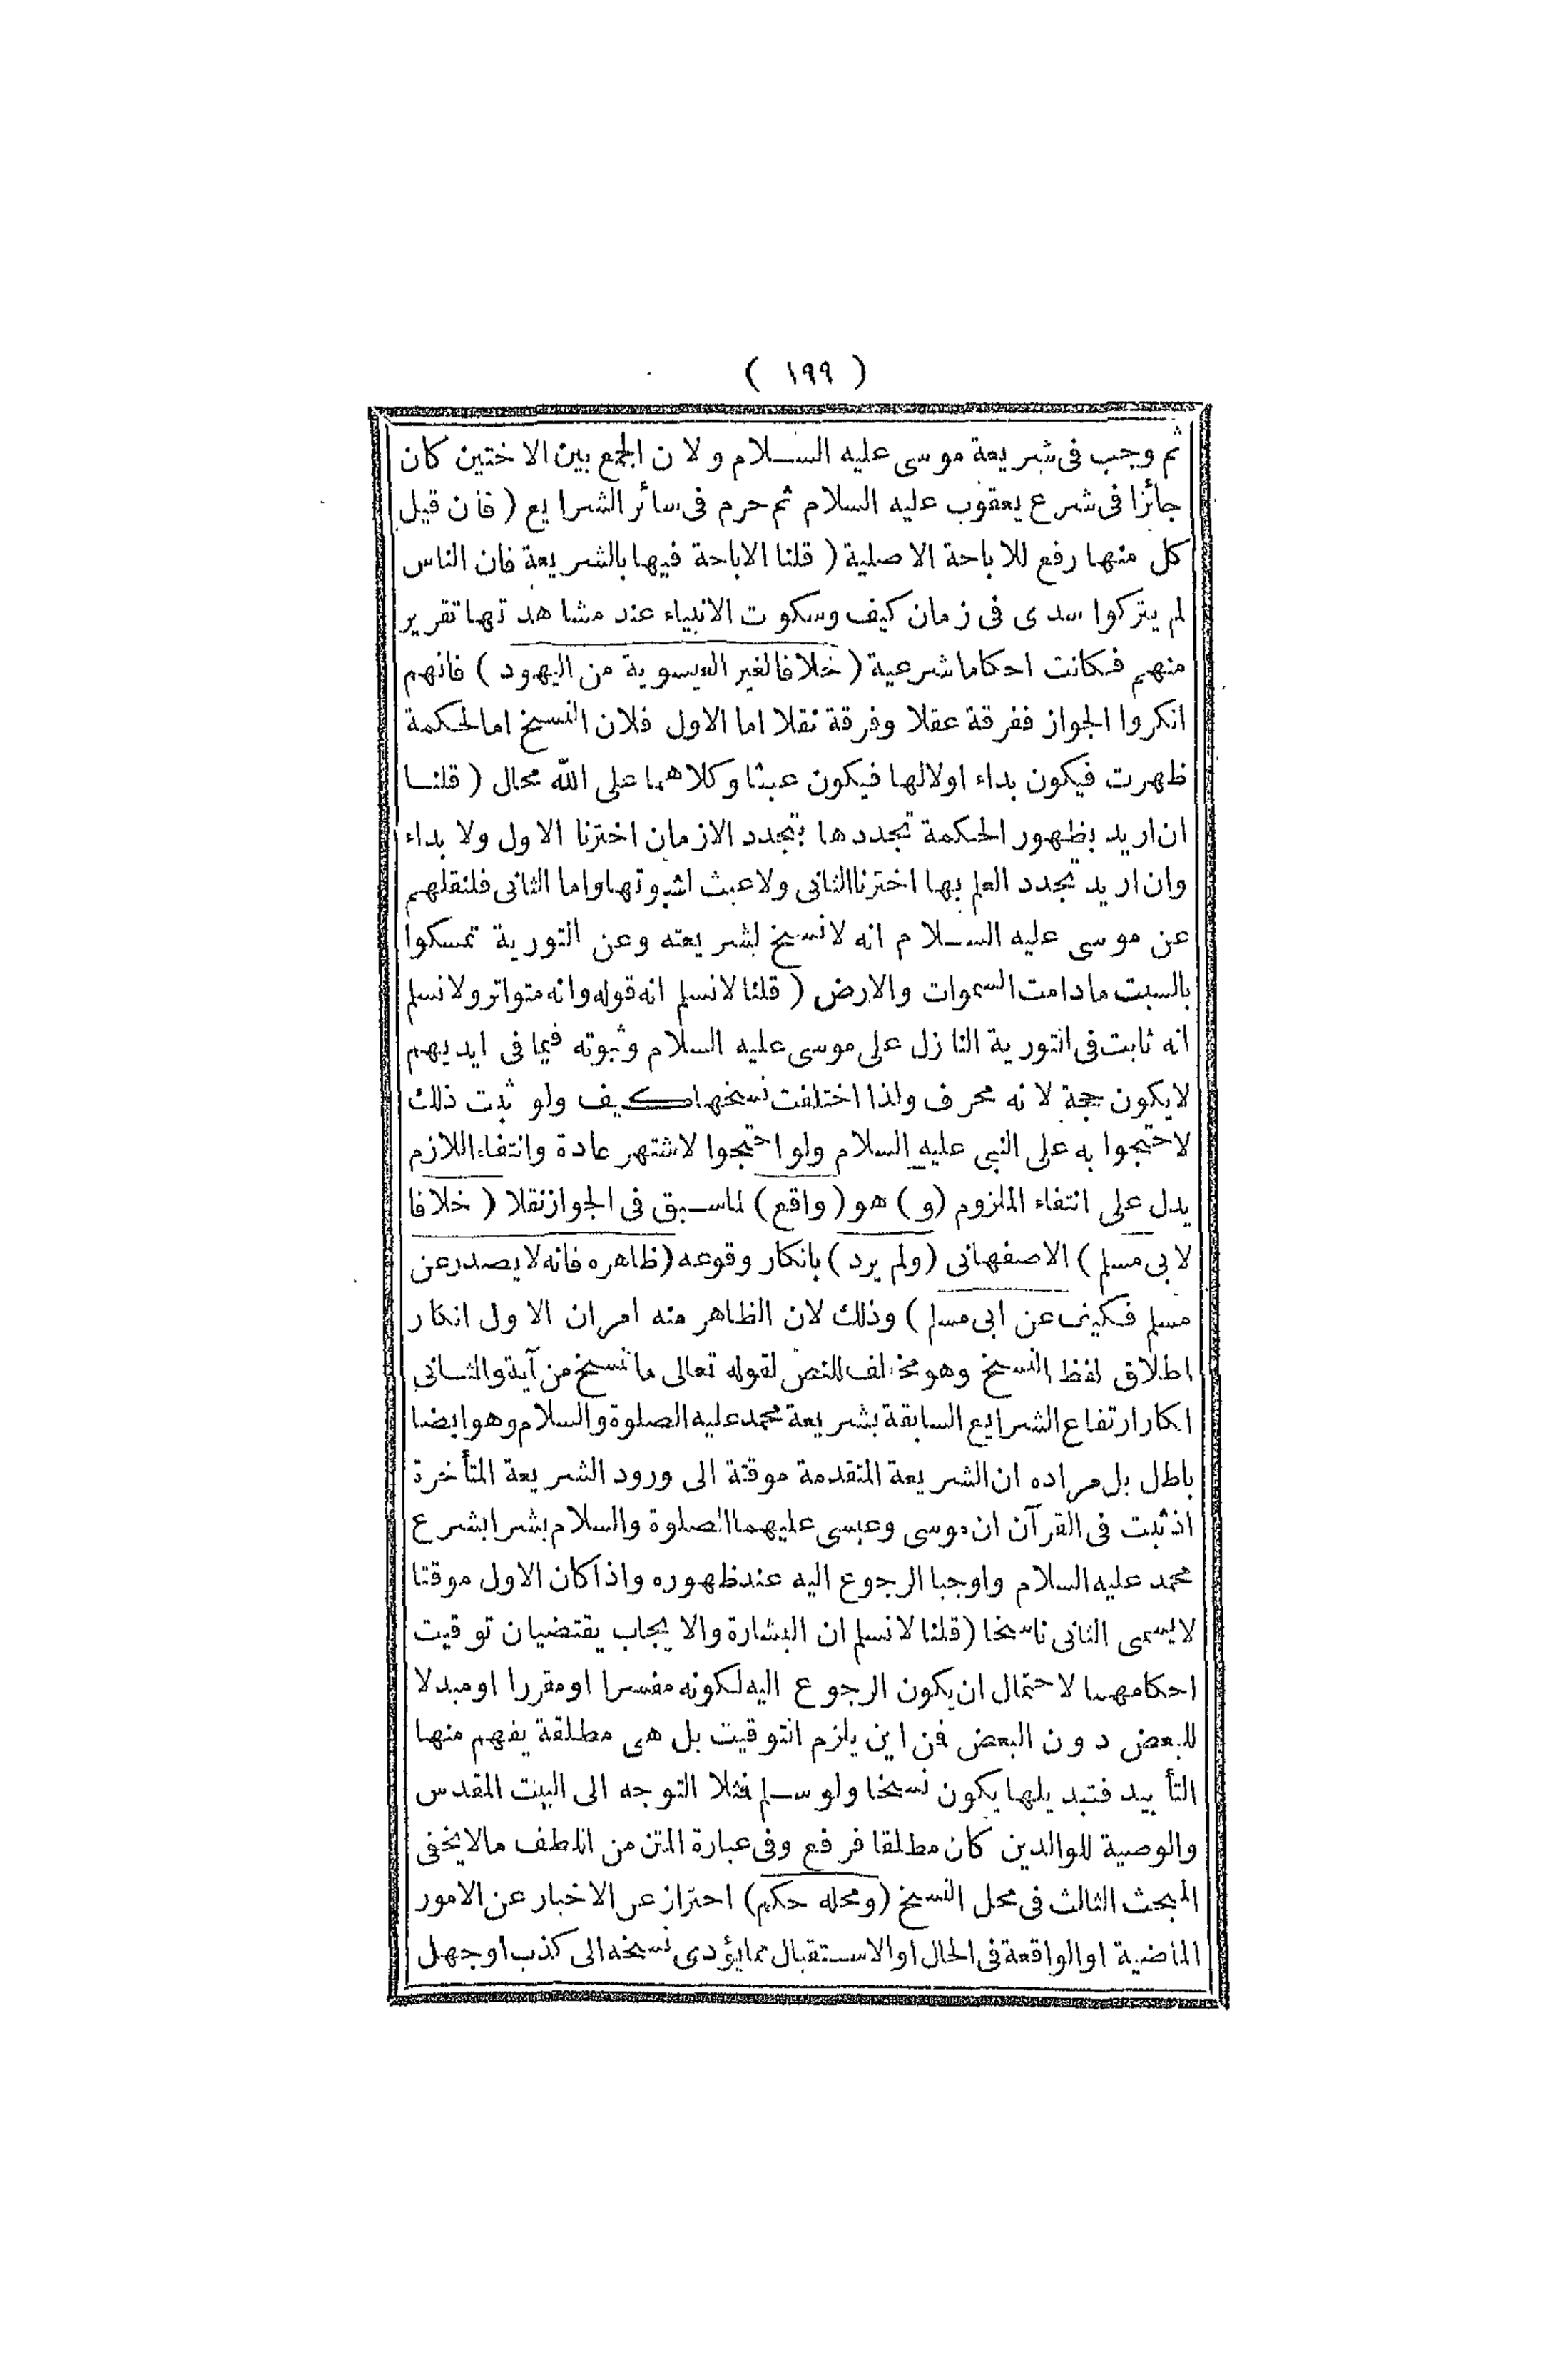 ( ١٩٩ )
ثم وجب فى شريعة موسى عليه السلام ولان الجمع بين الاختين كان
جائزا فى شرع يعقوب عليه السلام ثم حرم فى سائر الشرايع ( فان قيل
كل منها رفع للاباحة الاصلية ( قلنا الاباحة فيها بالشريعة فان الناس
لم يتركوا سدى فى زمان كيف وسكوت الانبياء عند مشاهدتها تقرير
منهم فكانت احكاما شرعية ( خلافا لغير العيسوية من اليهود ) فانهم
انكروا الجواز ففرقة عقلا وفرقة نقلا اما الاول فلان النسخ اما لحكمة
ظهرت فيكون بداء اولالها فيكون عبثا وكلاهما على الله محال ( قلنا
ان اريد بظهور الحكمة تجددها بتجدد الازمان اخترنا الاول ولا بداء
وان اريد تجدد العلم بها اخترنا الثانى ولاعبث لثبوتها واما الثانى فلنقلهم
عن موسى عليه السلام انه لانسخ لشريعته وعن التورية تمسكوا
بالسبت مادامت السموات والارض ( قلنا لانسلم انه قوله وانه متواتر ولانسلم
انه ثابت فى التورية النازل على موسى عليه السلام وثبوته فيما فى ايديهم
لايكون حجة لانه محرف ولذا اختلفت نسخها كيف ولو ثبت ذلك
لاحتجوا به على النبى عليه السلام ولو احتجوا لاشتهر عادة وانتفاء اللازم
يدل على انتفاء الملزوم (و) هو (واقع) لماسبق فى الجواز نقلا ( خلافا
لابى مسلم ) الاصفهانى (ولم يرد) بانكار وقوعه (ظاهره فانه لايصدر عن
مسلم فكيف عن ابى مسلم ) وذلك لان الظاهر منه امران الاول انكار
اطلاق لفظ النسخ وهو مخالف للنص لقوله تعالى ماننسخ من آية والثانى
انكار ارتفاع الشرايع السابقة بشريعة محمد عليه الصلوة والسلام وهو ايضا
باطل بل مراده ان الشريعة المتقدمة موقتة الى ورود الشريعة المتأخرة
اذ ثبت فى القرآن ان موسى وعيسى عليهما الصلوة والسلام بشرا بشرع
محمد عليه السلام واوجبا الرجوع اليه عند ظهوره واذا كان الاول موقتا
لايسمى الثانى ناسخا (قلنا لانسلم ان البشارة والايجاب يقتضيان توقيت
احكامهما لاحتمال ان يكون الرجوع اليه لكونه مفسرا اومقررا اومبدلا
للبعض دون البعض فمن اين يلزم التوقيت بل هى مطلقة يفهم منها
التأبيد فتبديلها يكون نسخا ولو سلم فمثلا التوجه الى البيت المقدس
والوصية للوالدين كان مطلقا فرفع وفى عبارة المتن من اللطف مالايخفى
المبحث الثالث فى محل النسخ (ومحله حكم) احتراز عن الاخبار عن الامور
الماضية اوالواقعة فى الحال اوالاستقبال مما يؤدى نسخه الى كذب اوجهل